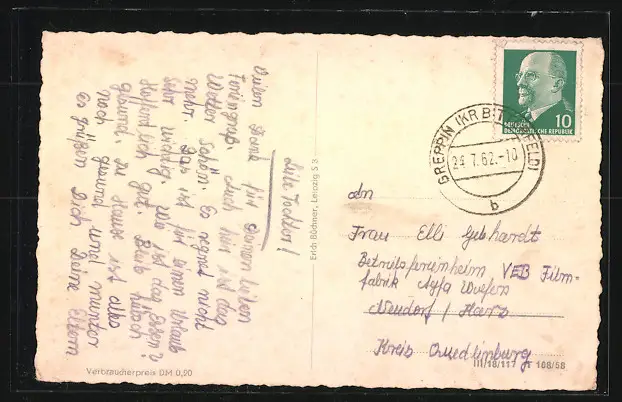 Liebe Tochter!
Vielen Dank für Deinen lieben
Feriengruß. Auch hier ist das
Wetter schön. Es regnet nicht
mehr. Das ist für einen Urlaub
sehr wichtig. Wie ist das Essen?
Hoffentlich gut. Bleib hübsch
gesund. Zu Hause ist alles
noch gesund und munter
Es grüßen Dich Deine Eltern
Verbraucherpreis DM 0,20
Erich Büchner, Leipzig S 3
10
DEUTSCHE
DEMOKRATISCHE REPUBLIK
GREPPIN (KR BITTERFELD)
7.62.-10
b
An
Frau Elli Gebhardt
Betriebsferienheim VEB Film-
fabrik Agfa Wolfen
Neudorf / Harz
Kreis Quedlinburg
III/18/117 A 108/58